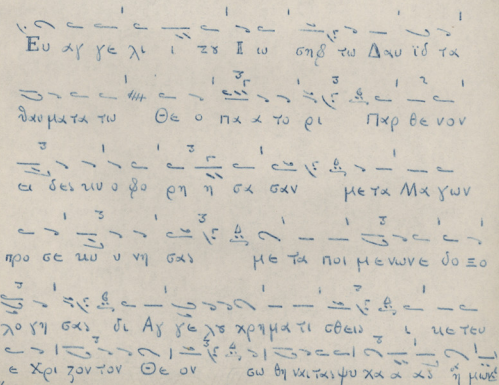 Ευ αγ γε λι ι ζȣ Ι ω σηφ τω Δαυ ϊδ τα
θαυματα τω Θε ο πα α το ρι Παρ θε νον
ει δες κυ ο φο ρη η σα σαν με τα Μα γων
προ σε κυ υ νη σας με τα ποι με νων ε δο ξο
λο γη σας δι Αγ γε λȣ χρηματι σθεις ι κε τευ
ε Χρι ϛον τον Θε ον σω θη ναι τας ψυ χα α ας η μων